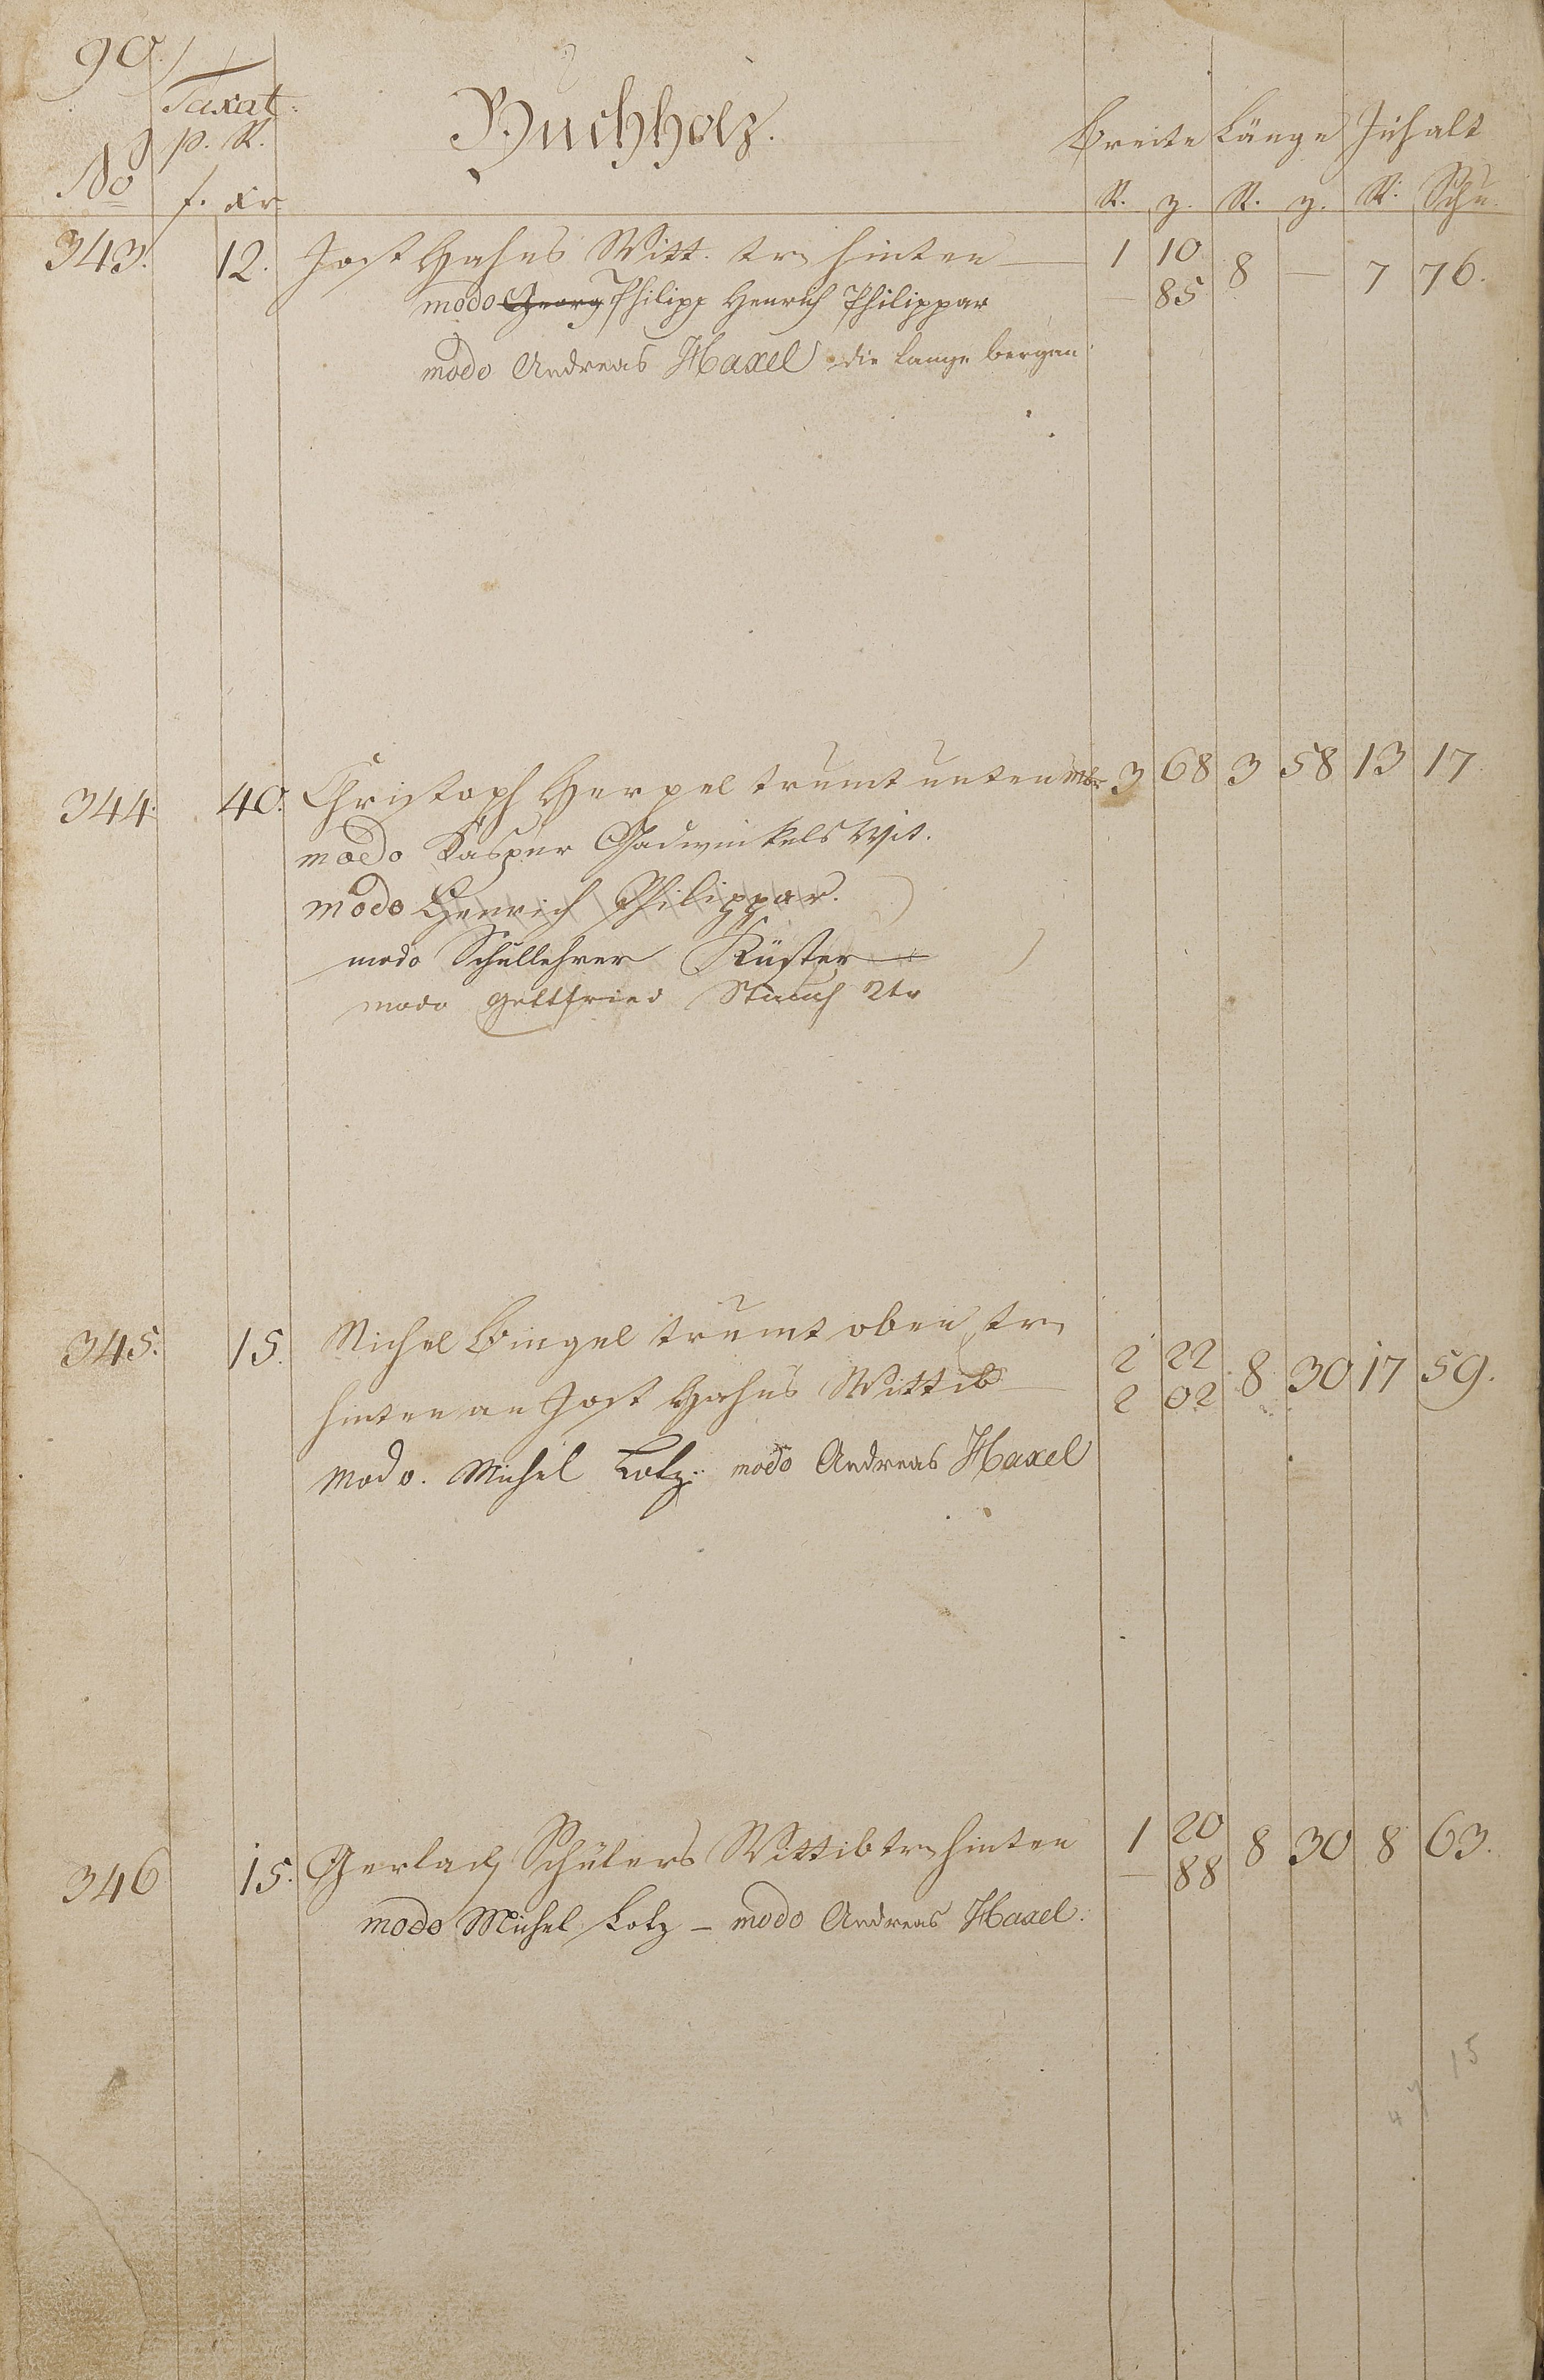 90.
Taxat.
p. R.
Buchholz.
Breite Länge Inhalt
No f. xr. R. z. R. z. R. Schu.
343. 12. Jost Hahns Witt. tr. hinten — 1 10 8 — 7 76.
modo Georg Philipp Henrich Philippar — 85
modo Andreas Haxel die lange bergan
344. 40. Christoph Herpel trumt unten 3 68 3 58 13 17
modo Kasper Wit.
modo Henrich Philippar.
modo Schullehrer Küster
modo Gottfried Stauch 2tr
345. 15. Michel Bingel trumt oben, tr. 2 22 8 30 17 59.
hinten an Jost Hahns Wittib — 2 02
modo. Michel Lotz. modo Andreas Haxel
346 15. Gerlach Schülers Wittib tr. hinten 1 20 8 30 8 63.
— 88
modo Michel Lotz – modo Andreas Haxel.
15